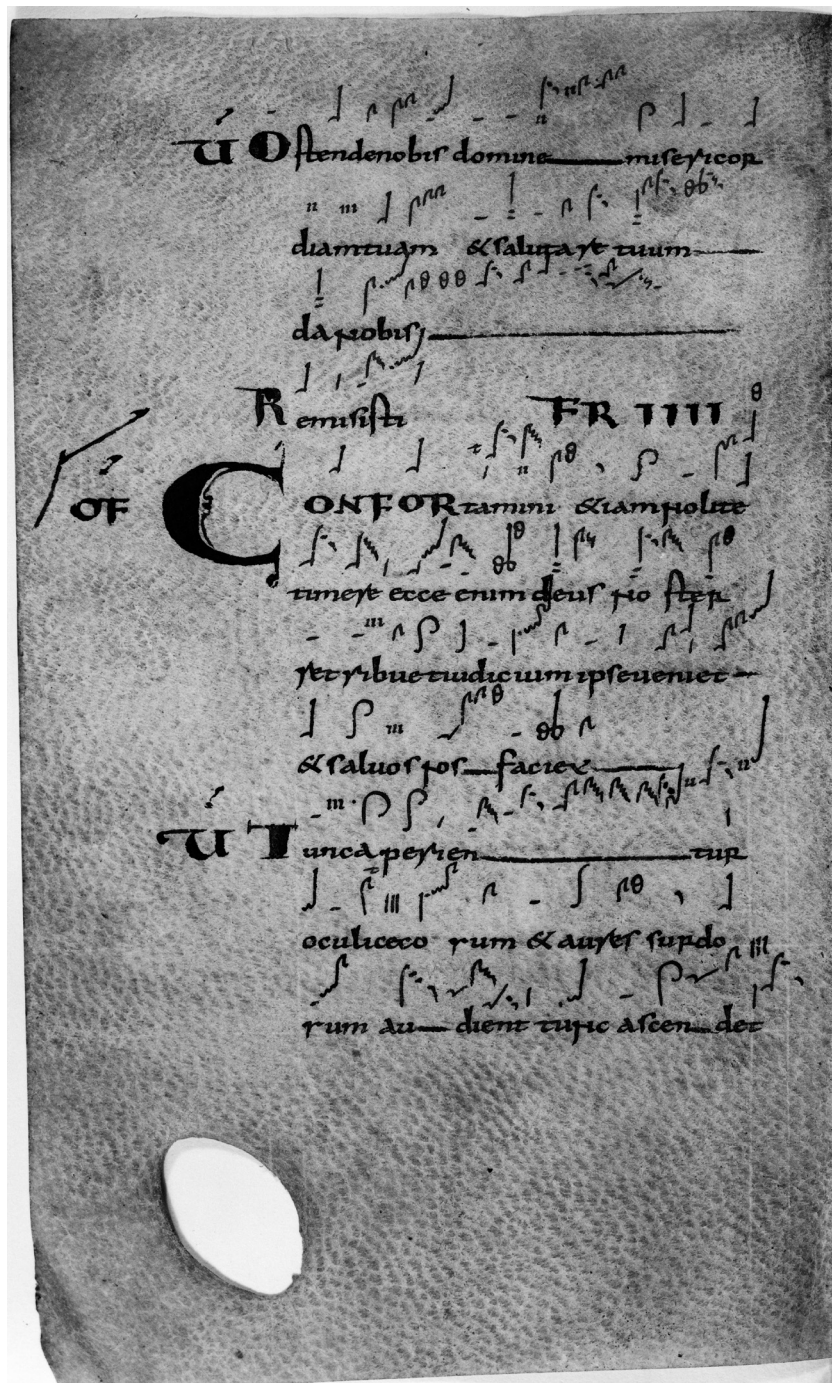 V Ostendenobis domine misericor
diamtuam & salutare tuum
da nobis
Remisisti FR IIII
OF CONFORtamini & iam nolite
timere ecce enim deus no ster
retribuet iudicium ipse veniet
& salvos nos faciet
V Tunc aperien tur
oculi ceco rum & aures surdo
rum au dient tunc ascen det